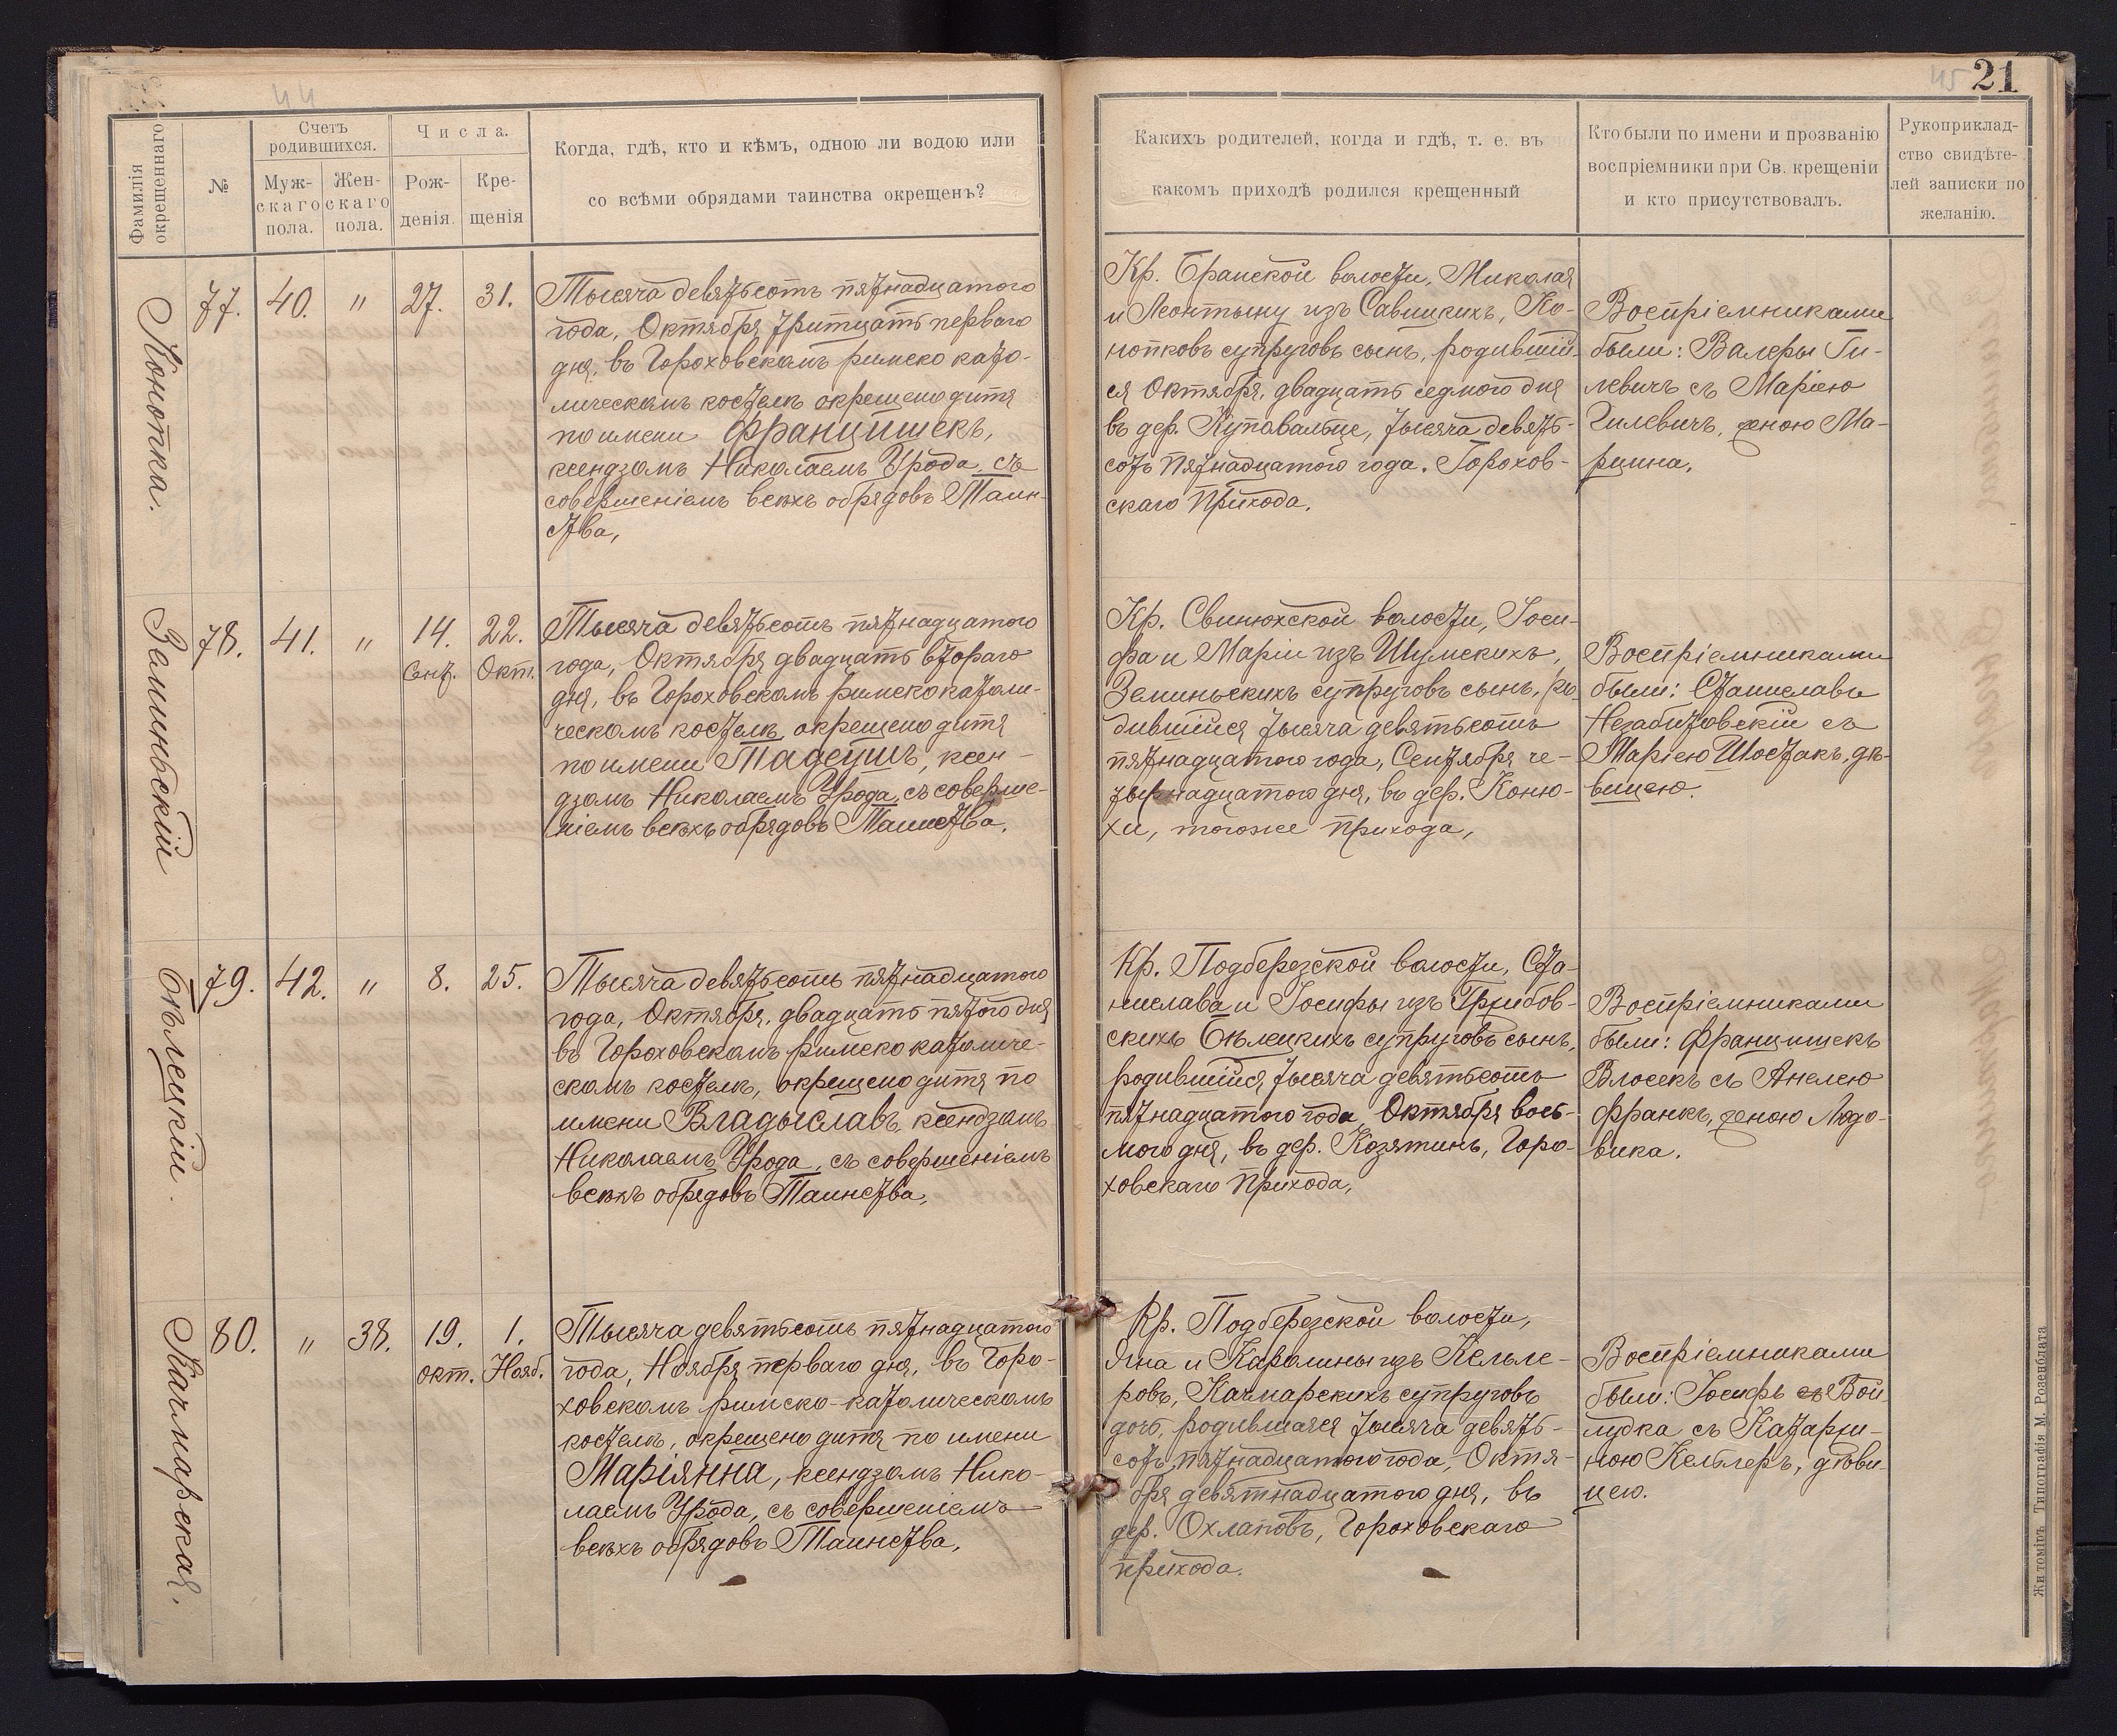 44
45 21
Фамилія окрещеннаго
№
Счетъ родившихся.
Мужскаго пола.
Женскаго пола.
Числа.
Рожденія
Крещенія
Когда, гдѣ, кто и кѣмъ, одною ли водою или
со всѣми обрядами таинства окрещенъ?
Какихъ родителей, когда и гдѣ, т. е. въ
какомъ приходѣ родился крещенный
Кто были по имени и прозванію
воспріемники при Св. крещеніи
и кто присутствовалъ.
Рукоприклад-
ство свидѣте-
лей записки по
желанію.
Конопка.
77. 40. " 27. 31.
Тысяча девятьсотъ пятнадцатого
года, Октября тритцать перваго
дня, въ Гороховскомъ римско като-
лическомъ костелѣ окрещено дитя
по имени Францишекъ,
ксендзомъ Николаемъ Урода, съ
совершеніемъ всѣхъ обрядовъ Таин-
ства,
Кр. Бранской волости, Миколая
и Леонтыну изъ Савицкихъ, Ко-
нопковъ супруговъ сынъ, родившій-
ся Октября, двадцать седмого дня
въ дер. Куповальце, тысяча девять-
сотъ пятнадцатого года. Горохов-
скаго Прихода.
Воспріемниками
были: Валеры Ги-
левичъ съ Маріею
Гилевичъ, женою Ма-
рцина.
Земиньскій
78. 41. " 14. 22.
Сент. Окт.
Тысяча девятьсотъ пятнадцатого
года, Октября двадцать втораго
дня, въ Гороховскомъ римскокатоли-
ческомъ костелѣ окрещено дитя
по имени Тадеушъ, ксен-
дзомъ Николаемъ Урода, съ соверше-
ніемъ всѣхъ обрядовъ Таинства.
Кр. Свинюхской волости, Іоси-
фа и Маріи изъ Шумскихъ,
Земиньскихъ супруговъ сынъ, ро-
дившійся тысяча девятьсотъ
пятнадцатого года, Сентября че-
тырнадцатого дня, въ дер. Коню-
хи, тогоже прихода,
Воспріемниками
были: Станиславъ
Незабитовскій съ
Маріею Шостакъ, дѣ-
вицею.
Бѣлецкій.
79. 42. " 8. 25.
Тысяча девятьсотъ пятнадцатого
года, Октября, двадцать пятого дня
въ Гороховскомъ римско католиче-
скомъ костелѣ, окрещено дитя по
имени Владыславъ, ксендзомъ
Николаемъ Урода, съ совершеніемъ
всѣхъ обрядовъ Таинства,
Кр. Подберезской волости, Ста-
нислава и Іосифы изъ Грибов-
скихъ Бѣлецкихъ супруговъ сынъ,
родившійся тысяча девятьсотъ
пятнадцатого года Октября вось-
мого дня, въ дер. Козятинъ, Горо-
ховскаго Прихода,
Воспріемниками
были: Францишекъ
Влосекъ съ Анелею
Франкъ, женою Людо-
вика.
Качмарская.
80. " 38. 19. 1.
Окт. Нояб.
Тысяча девятьсотъ пятнадцатого
года, Ноября перваго дня, въ Горо-
ховскомъ римско-католическомъ
костелѣ, окрещено дитя по имени
Маріянна, ксендзомъ Нико-
лаемъ Урода, съ совершеніемъ
всѣхъ обрядовъ Таинства,
Кр. Подберезской волости,
Яна и Каролины изъ Кельле-
ровъ, Качмарскихъ супруговъ
дочь, родившаяся тысяча девять-
сотъ пятнадцатого года, Октя-
бря девятнадцатого дня, въ
дер. Охлаповъ, Гороховскаго
прихода.
Воспріемниками
были: Іосифъ Вой-
лудка съ Катаржи-
ною Кельлеръ, дѣви-
цею.
Житоміръ. Типографія М. Розенблата